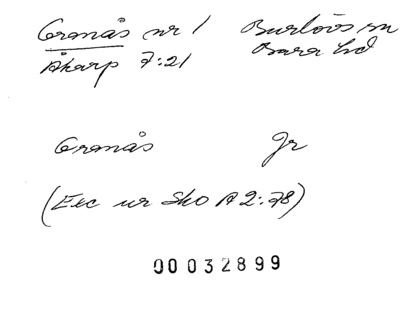 Granås nr 1 Burlövs sn
Åkarp 7:21 Bara hd
Granås Jr
(Exc ur Sko A 2:78)
00032899